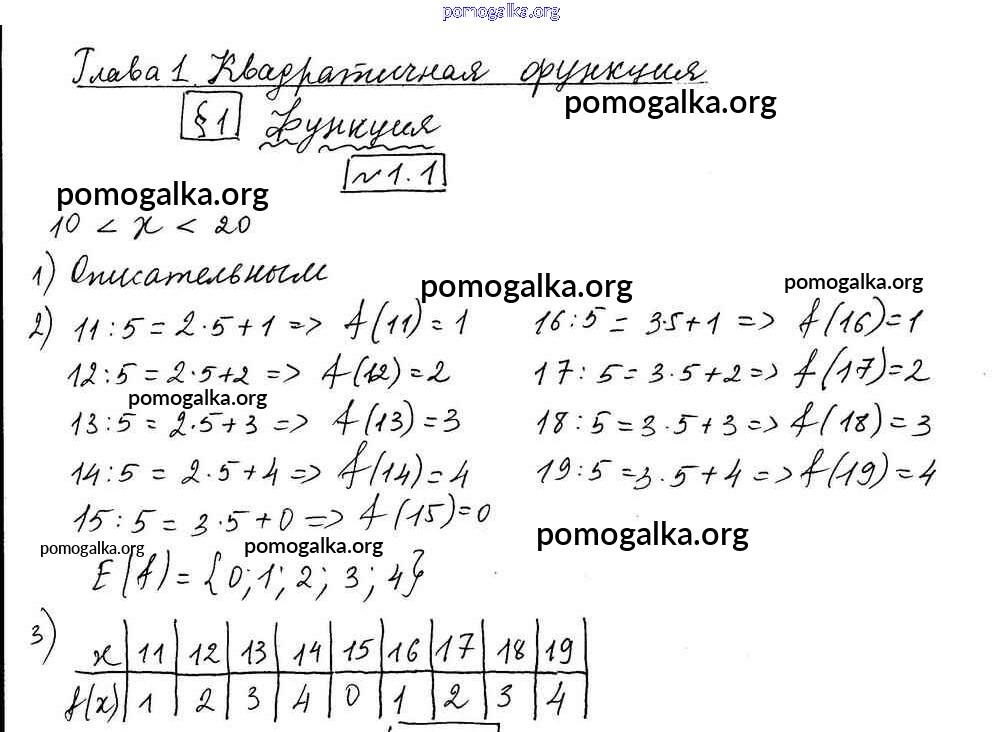 pomogalka.org
Глава 1. Квадратичная функция
pomogalka.org
§1 Функция
№1.1
pomogalka.org
10 < x < 20
1) Описательным
pomogalka.org
pomogalka.org
2) 11:5 = 2·5+1 => f(11)=1
12:5 = 2·5+2 => f(12)=2
pomogalka.org
13:5 = 2·5+3 => f(13)=3
14:5 = 2·5+4 => f(14)=4
15:5 = 3·5+0 => f(15)=0
16:5 = 3·5+1 => f(16)=1
17:5 = 3·5+2 => f(17)=2
18:5 = 3·5+3 => f(18)=3
19:5 = 3·5+4 => f(19)=4
pomogalka.org
pomogalka.org
pomogalka.org
E(f) = {0; 1; 2; 3; 4}
3) x 11 12 13 14 15 16 17 18 19
f(x) 1 2 3 4 0 1 2 3 4